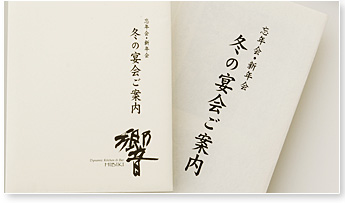 忘年会・新年会
冬の宴会ご案内
響
Japanese Kitchen & Bar
HIBIKI
忘年会・新年会
冬の宴会ご案内